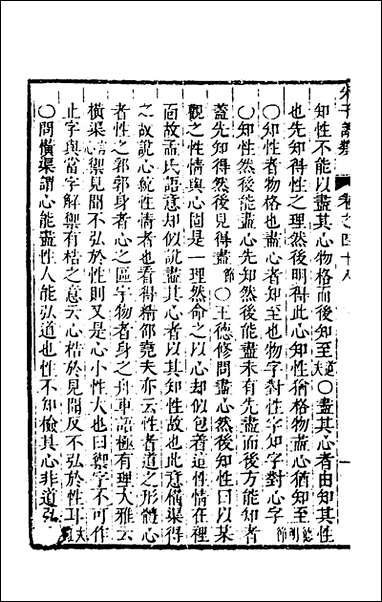 知性不能以盡其心物格而後知至○盡其心者由知其性
也先知得性之理然後明得此心知性猶格物盡心猶知至
○知性者物格也盡心者知至也物字對性字知字對心字節
○知性然後能盡心先知然後能盡未有先盡而後方能知者
蓋先知得然後見得盡節○王德修問盡心然後知性曰以某
觀之性情與心固是一理然命之以心却似包着這性情在裡
面故孟氏語意却似說盡其心者以其知性故也此意橫渠得
之故說心統性情者也看得精邵堯夫亦云性者道之形體心
者性之郛郭身者心之區宇物者身之舟車語極有理大雅云
橫渠言心禦見聞不弘於性則又是心小性大也曰禦字不可作
止字與當字解禦有梏之意云心梏於見聞反不弘於性耳
○問橫渠謂心能盡性人能弘道也性不知檢其心非道弘